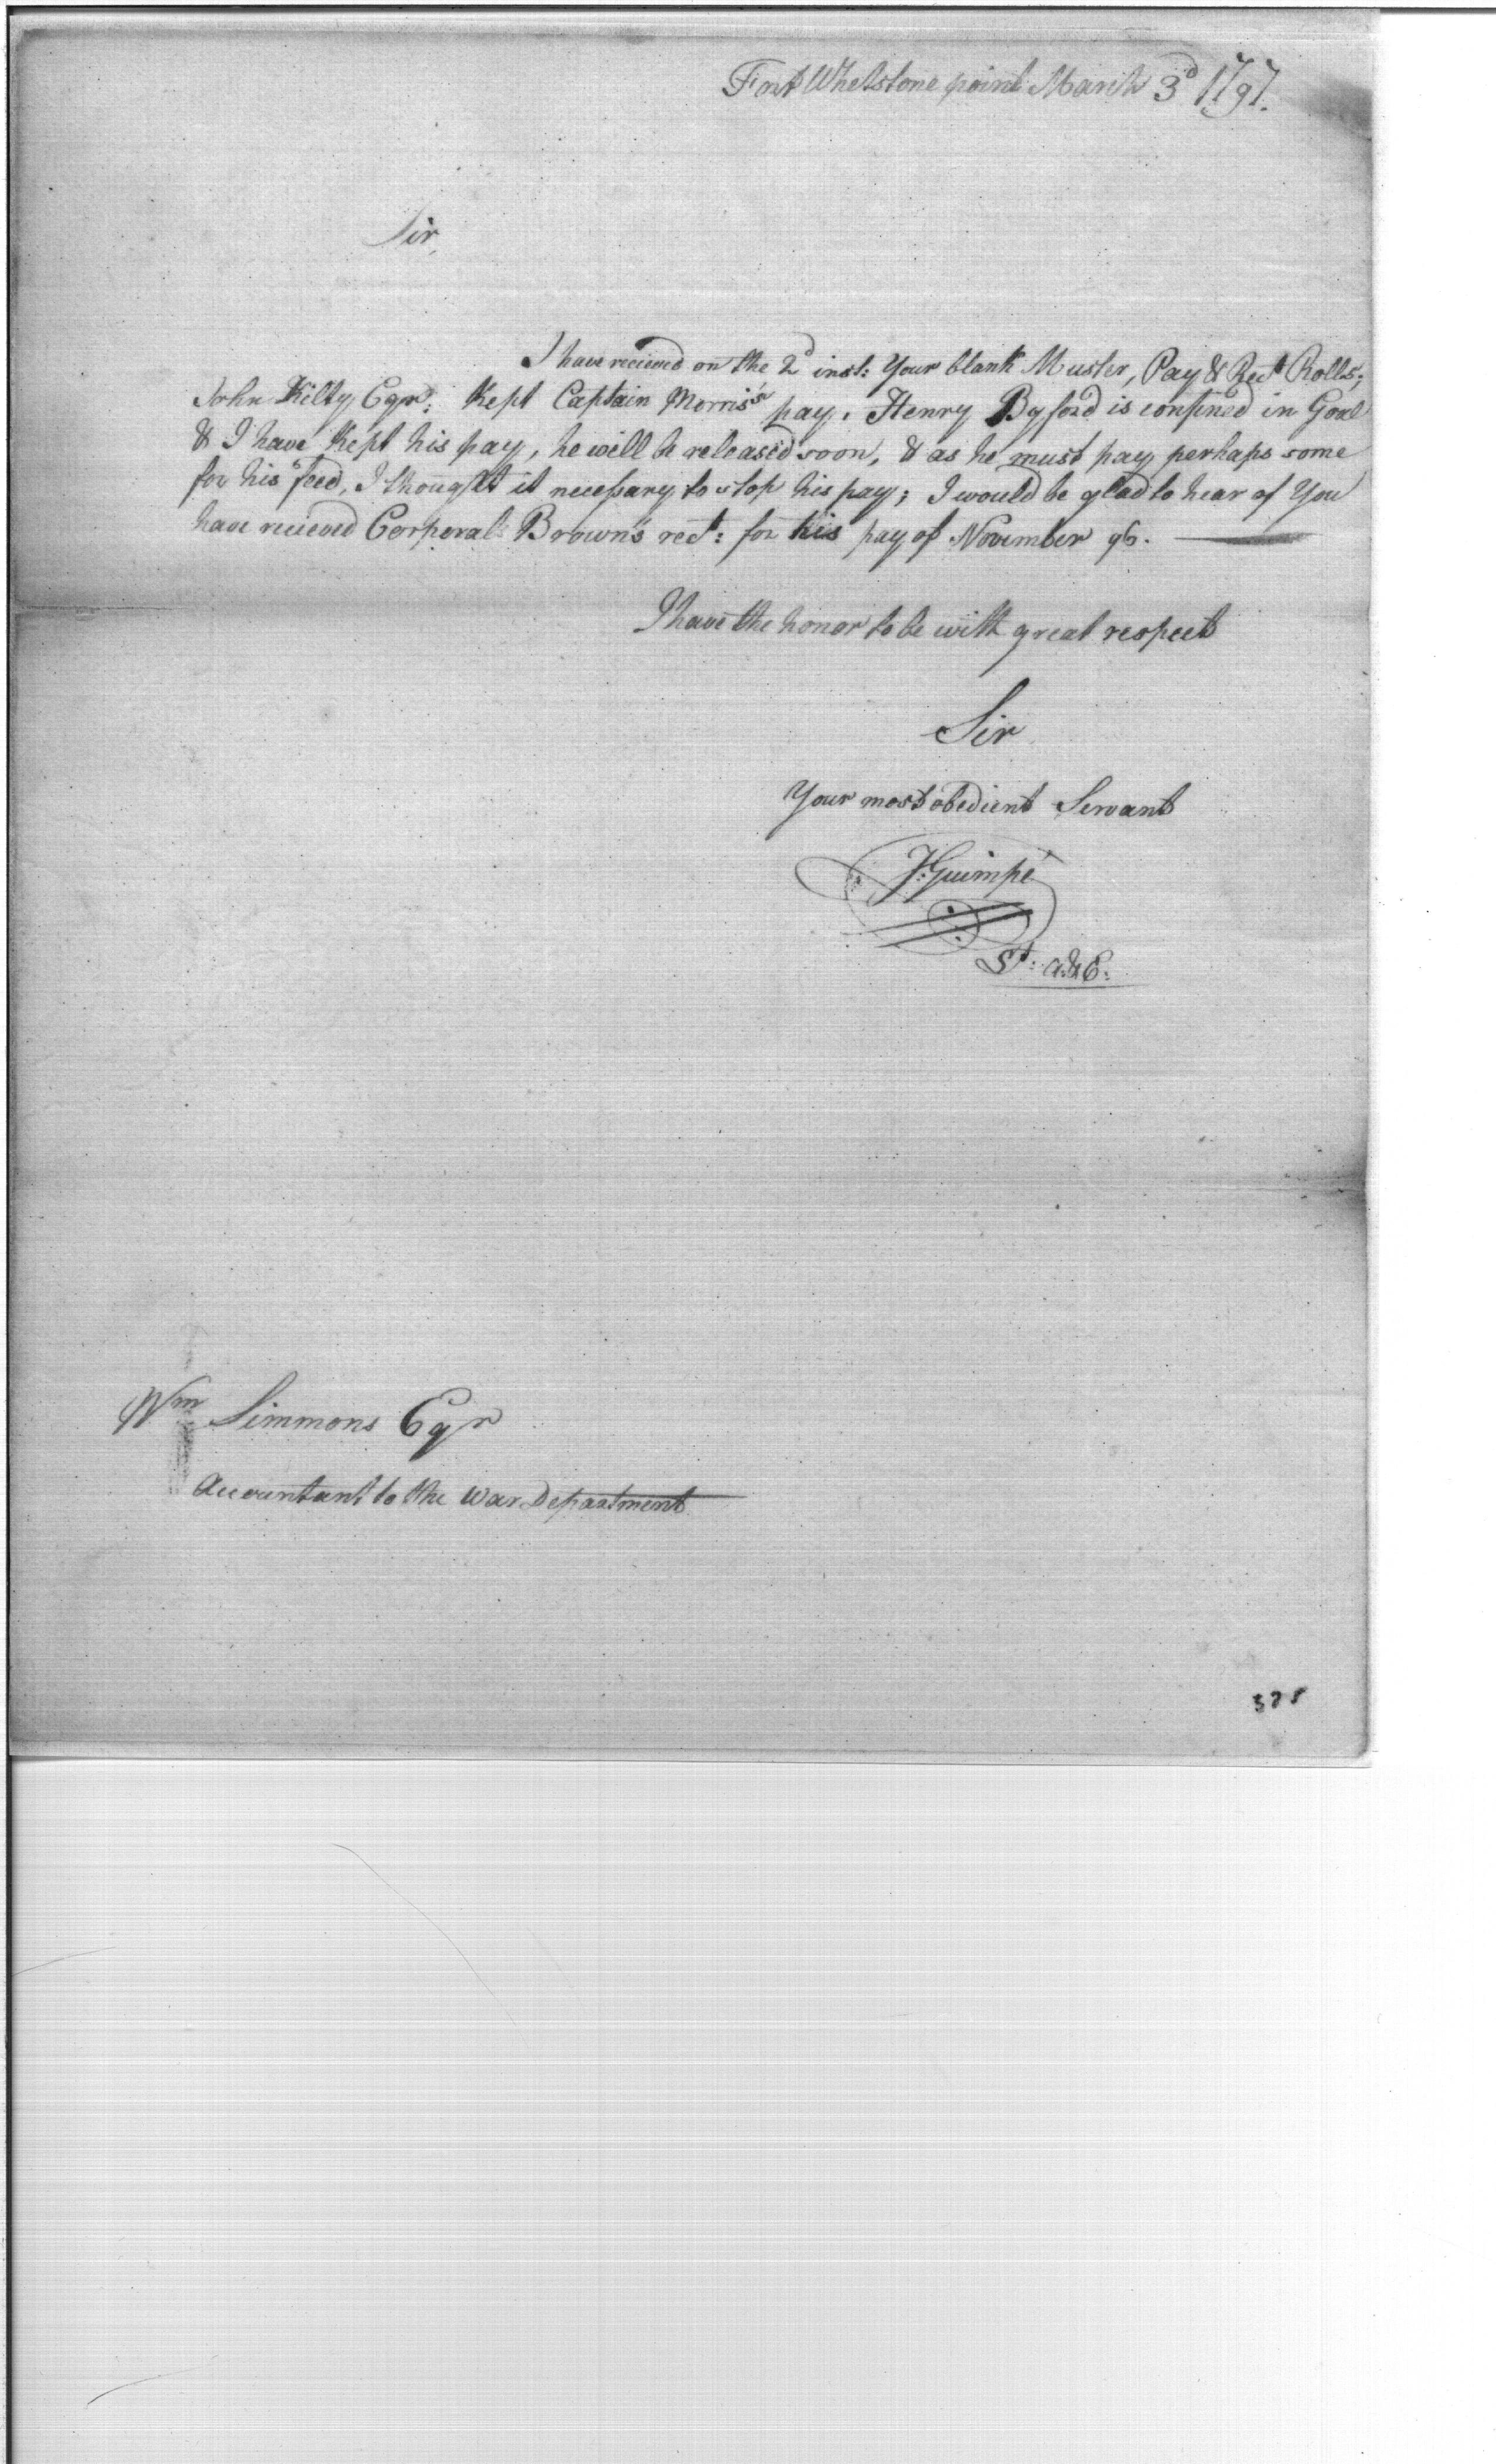 Fort Whetstone point March 3d 1797.
Sir,
I have recieved on the 2d inst: Your blank Muster, Pay & Rect Rolls;
John Kilty Eqr: Kept Captain Morris's pay. Henry Byford is confined in Goal
& I have Kept his pay, he will be released soon, & as he must pay perhaps some
for his feed, I thought it necessary to stop his pay; I would be glad to hear of You
have recieved Corporal Brown's rect: for his pay of November 96.
I have the honor to be with great respect
Sir
Your most obedient Servant
F: Guimpé
St: A.&E:
Wm Simmons Eqr
Accountant to the War Department
375